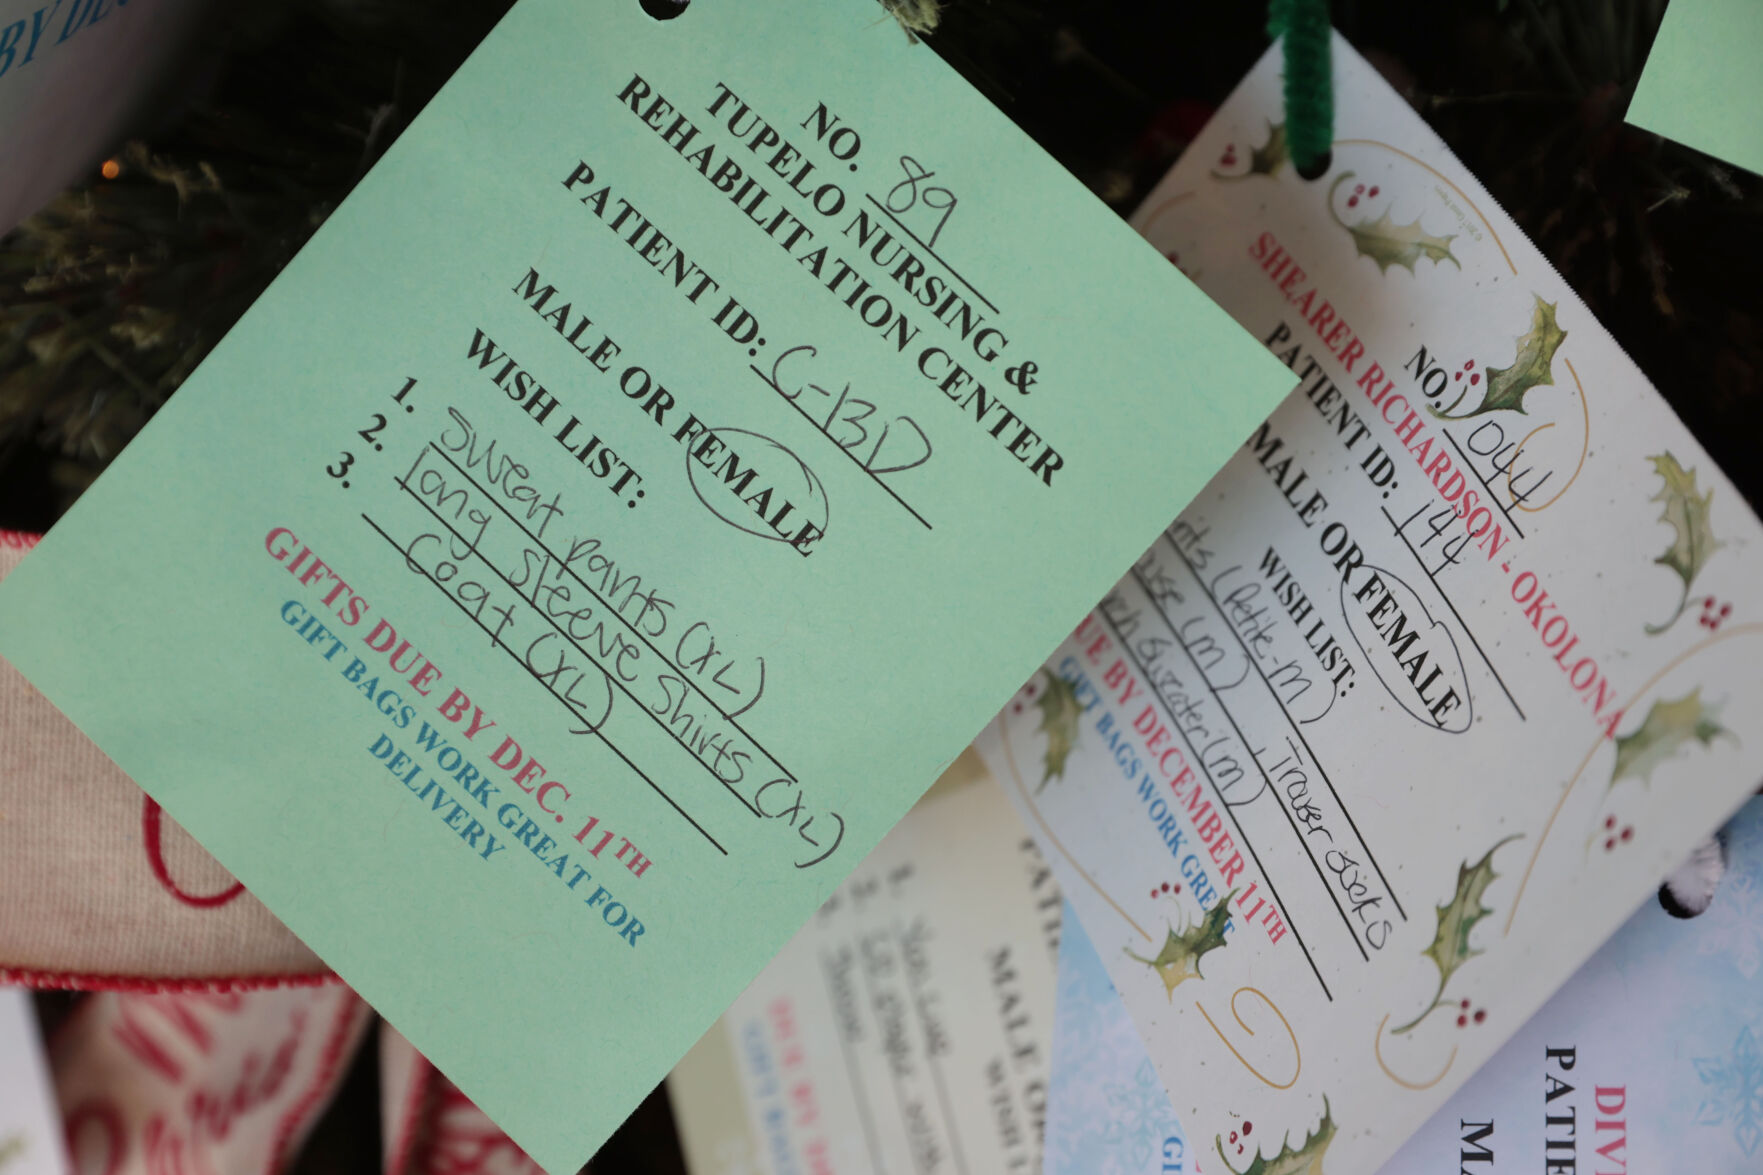 NO. 89
TUPELO NURSING &
REHABILITATION CENTER
PATIENT ID: C-13D
MALE OR FEMALE
WISH LIST:
1. Sweat pants (XL)
2. long sleeve shirts (XL)
3. Coat (XL)
GIFTS DUE BY DEC. 11TH
GIFT BAGS WORK GREAT FOR
DELIVERY
SHEARER RICHARDSON - OKOLONA
NO. 1044
PATIENT ID: 144
MALE OR FEMALE
WISH LIST:
(Petite-M) Trouser socks
(M)
Sweater (M)
DUE BY DECEMBER 11TH
GIFT BAGS WORK GREAT
MALE O
1.
2.
DIV
PATIE
MA
GI
BY DE